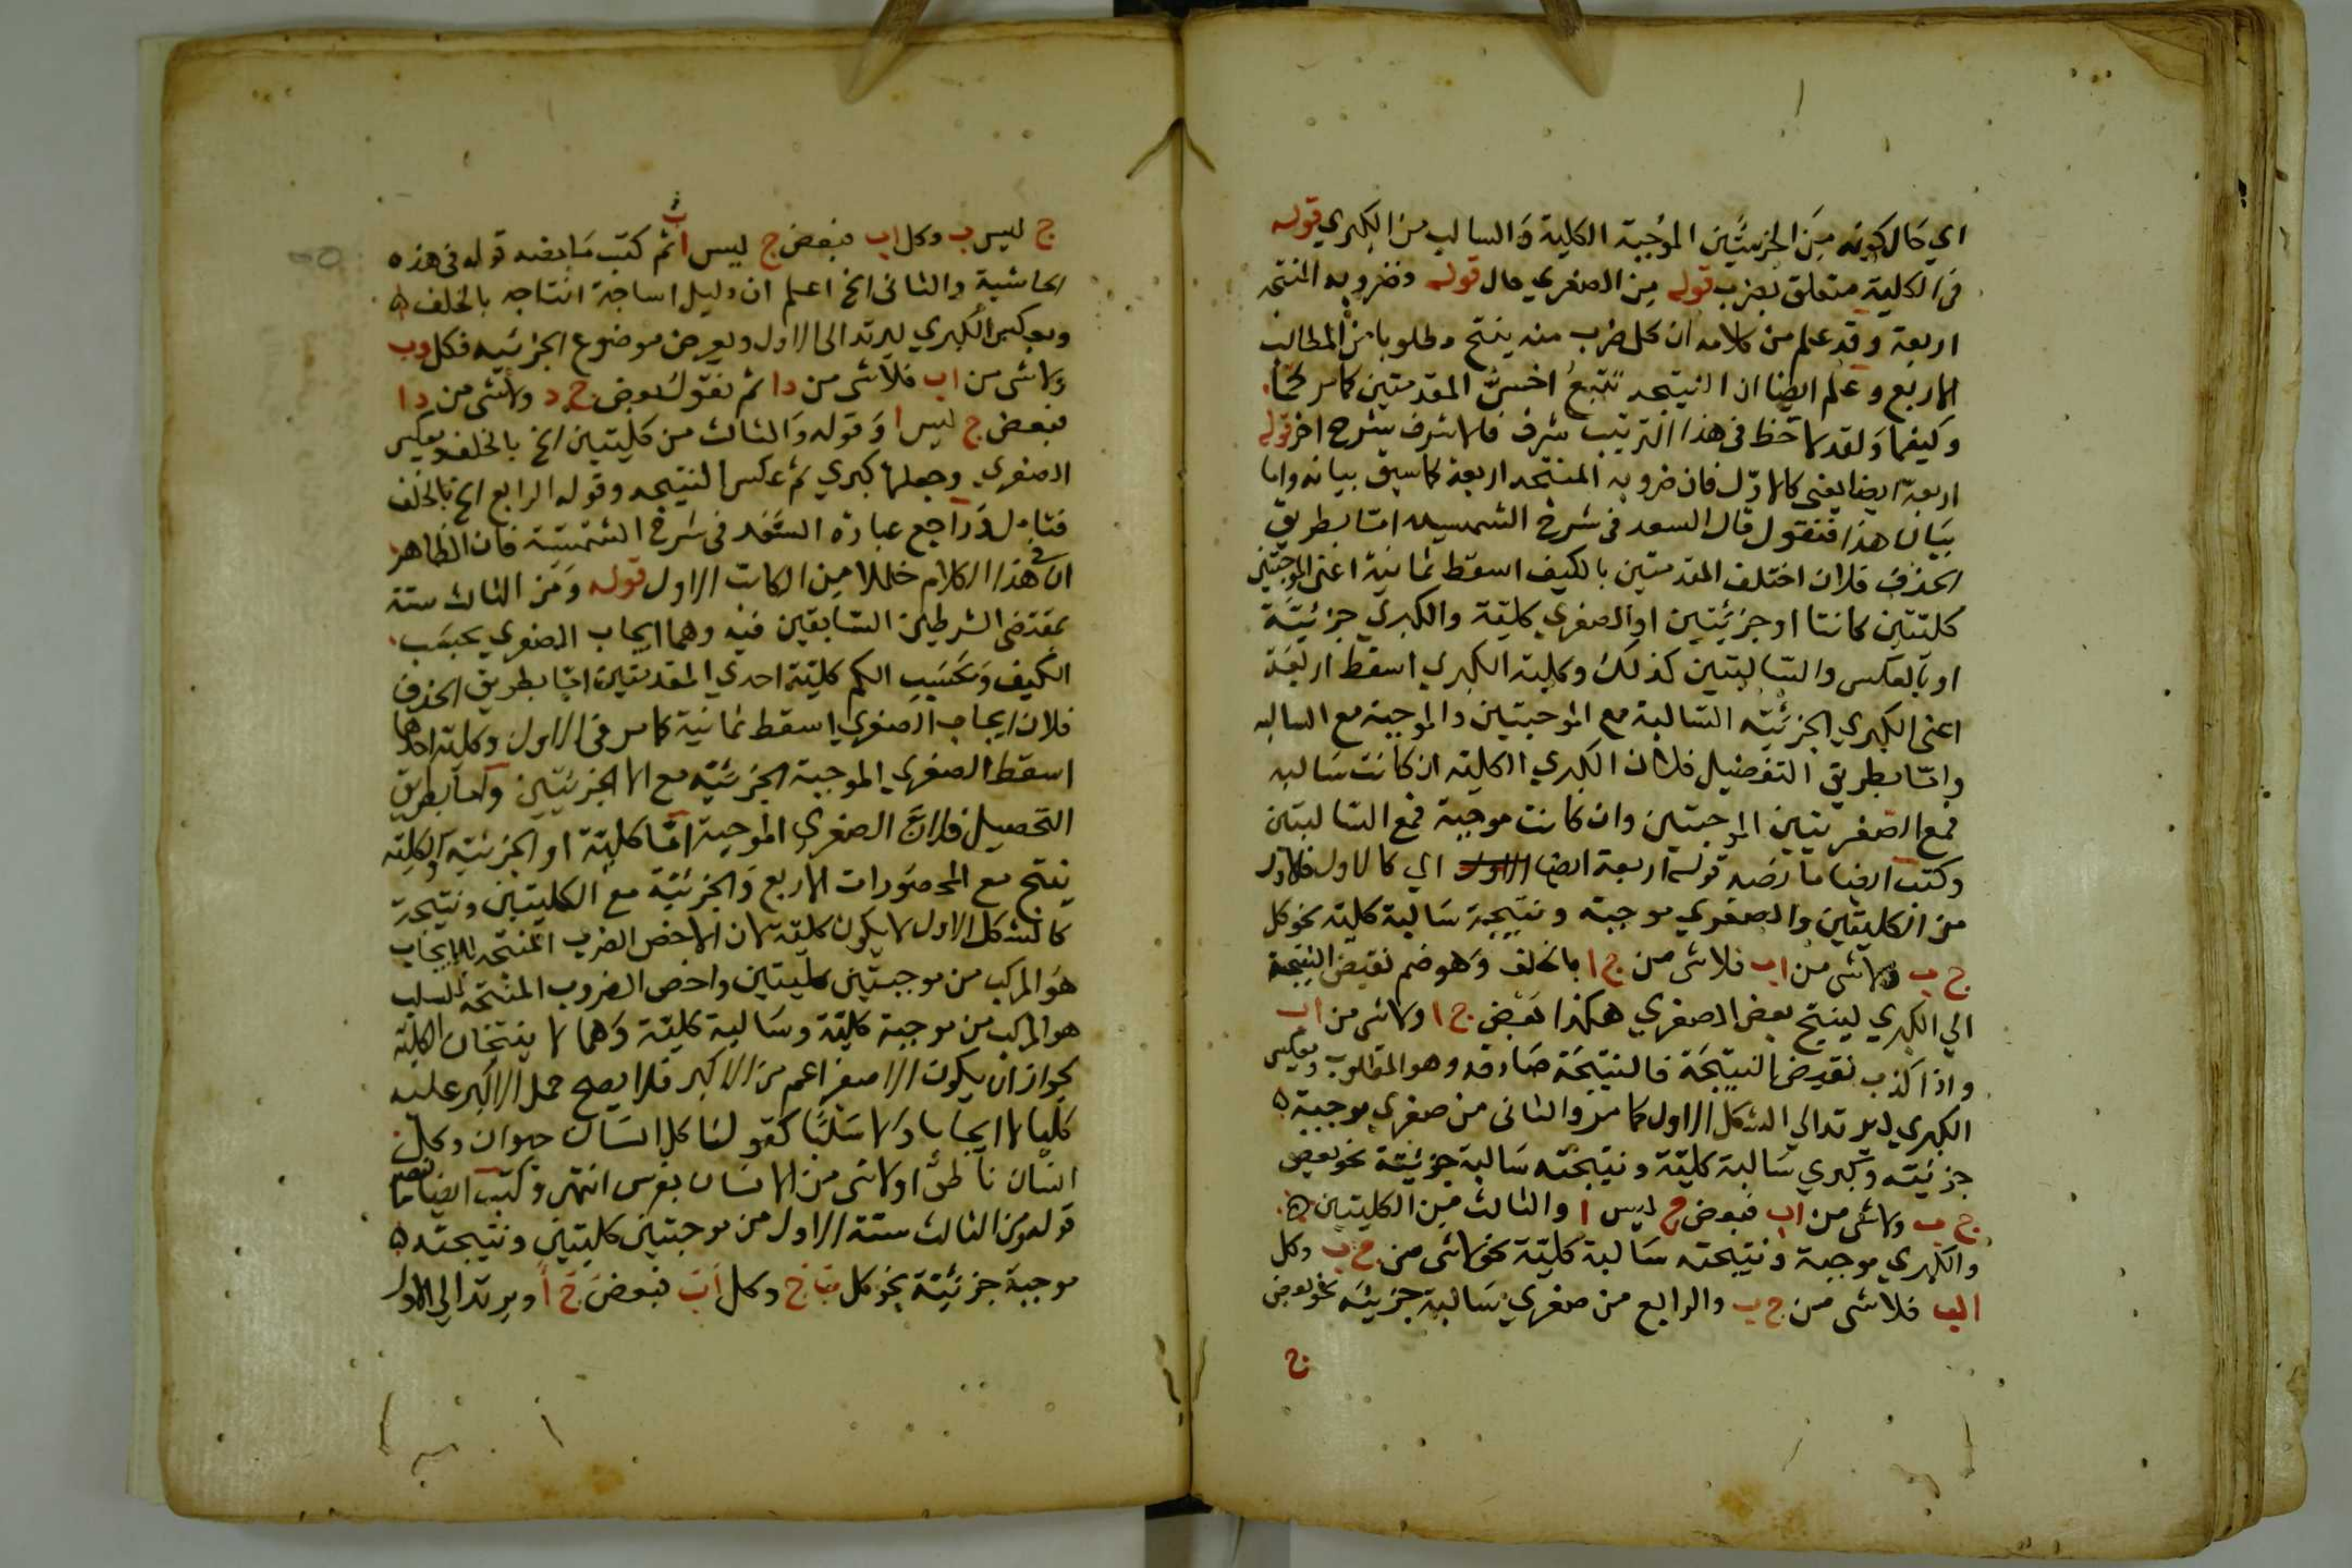 اي حال كونه من الجزئيتين الموجبة الكلية والسالب من الكبري قوله
في الكلية متعلق بضرب قوله من الصغري حال قوله وضروبه المنتجة
اربعة وقد علم من كلامه ان كل ضرب منه ينتج مطلوبا من المطالب
الاربع وعلم ايضا ان النتيجة تتبع اخس المقدمتين كما مر كما
وكيفا ولقد لاحظ في هذا الترتيب شرف فالاشرف بشرح اخر قوله
اربعة ايضا يعني كالاول فان ضروبه المنتجة اربعة كما سبق بيانه واما
بيان هذا فنقول قال السعد في شرح الشمسيه اما بطريق
الحذف فلان اختلف المقدمتين بالكيف اسقط ثمانية اعني الموجبتين
كليتين كانتا او جزئيتين او الصغري كلية والكبري جزئية
او بالعكس والسالبتين كذلك وكلية الكبري اسقط اربعة
اعني الكبري الجزئية السالبة مع الموجبتين والموجبة مع السالبه
واما بطريق التفصيل فلان الكبري الكلية ان كانت سالبه
فمع الصغريتين الموجبتين وان كانت موجبة فمع السالبتين
وكتب ايضا ما نصه قوله اربعة ايضا اي كالاول فالاول
من الكليتين والصغري موجبه ونتيجة سالبة كلية نحو كل
ج ب ولا شي من اب فلا شي من ج ا بالخلف وهو ضم نقيض النتيجة
الي الكبري لينتج بعض الصغري هكذا بعض ج ا ولا شي من اب
واذا كذب نقيض النتيجة فالنتيجة صادقه وهو المطلوب وبعكس
الكبري ليرتد الي الشكل الاول كما مر والثاني من صغري موجبة ه
جزئيته وكبري سالبة كلية ونتيجته سالبة جزئية نحو بعض
ج ب ولا شي من اب فبعض ج ليس ا والثالث من الكليتين ه
والكبري موجبة ونتيجته سالبة كلية نحو لا شي من ج ب وكل
اب فلا شي من ج ب والرابع من صغري سالبة جزئية نحو بعض
ج
ج ليس ب وكل اب فبعض ج ليس ا ثم كتب ما بعنه قوله في هذه
الحاشية والثاني الخ اعلم ان دليل انتاجه بالخلف ه
وبعكس الكبري ليرتد الي الاول وبعرض موضوع الجزئيه فكل دب
ولا شي من اب فلا شي من دا ثم نقول بعض ج د ولا شي من دا
فبعض ج ليس ا وقوله والثالث من كليتين الخ بالخلف وبعكس
الصغري وجعلها كبري ثم عكس النتيجه وقوله الرابع الخ بالخلف
فتامل وراجع عبارة السعد في شرح الشمسية فان الظاهر
ان في هذا الكلام خللا من الكاتب الاول قوله ومن الثالث ستة
بمقتضي الشرطين السابقين فيه وهما ايجاب الصغري بحسب
الكيف وبحسب الكم كلية احدي المقدمتين اما بطريق الحذف
فلان ايجاب الصغري اسقط ثمانية كما مر في الاول وكلية احدها
اسقط الصغري الموجبة الجزئية مع الجزئيتين واما بطريق
التحصيل فلان الصغري الموجبة اما كلية او الجزئية والكلية
ينتج مع المحصورات الاربع والجزئية مع الكليتين ونتيجة
كالشكل الاول لا يكون كلية لان الاخص الضرب المنتجه للايجاب
هو المركب من موجبتين كليتين واخص الضروب المنتجة للسلب
هو المركب من موجبة كلية وسالبة كلية وهما لا ينتجان الكلية
لجواز ان يكون الاصغر اعم من الاكبر فلا يصح حمل الاكبر عليه
كليا لا ايجابا ولا سلبا كقولنا كل انسان حيوان وكل
انسان ناطق او لا شي من الانسان بفرس انتهي وكتب ايضا ما نصه
قوله ومن الثالث ستة الاول من موجبتين كليتين ونتيجته ه
موجبة جزئية نحو كل ب ج وكل اب فبعض ج ا ويرتد الي الاول